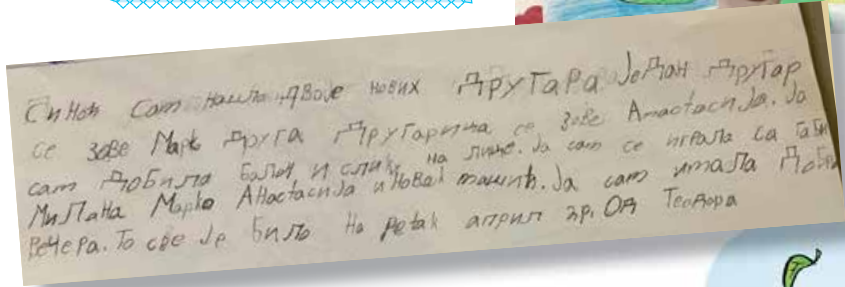 Синоћ сам нашла двоје нових другара Једaн другар
се зове Марк друга другарица се зове Анастасија. Ја
сам добила балон и слику на лице. Ја сам се играла са Габи
Милана Марко Анастасија и Новак машић. Ја сам имала добро
вечера. То све је било на petak април 2р. Од Теодора